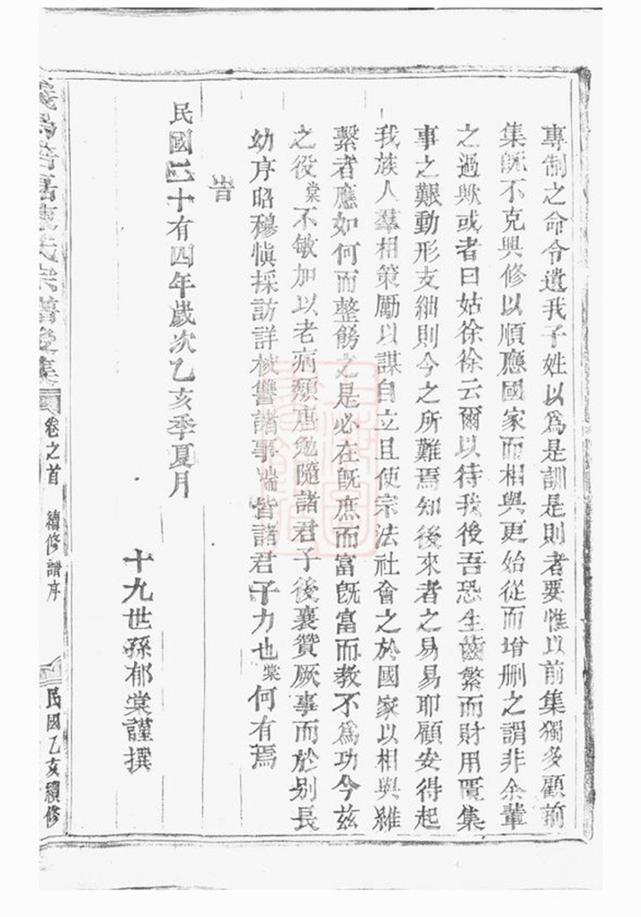 專制之命令遺我子姓以爲是訓是則者要惟以前集獨多顧前
集旣不克興修以順應國家而相與更始從而增删之謂非余輩
之過歟或者曰姑徐徐云爾以待我後吾恐生齒繁而財用匱集
事之艱動形支絀則今之所難焉知後來者之易易耶顧安得起
我族人羣相策勵以謀自立且使宗法社會之於國家以相與維
繫者應如何而整飭之是必在旣庶而富旣富而敎不爲功今兹
之役棠不敏加以老病頹唐勉隨諸君子後襄贊厥事而於别長
幼序昭穆愼採訪詳核讐諸事端皆諸君子力也棠何有焉
旹
民國二十有四年歲次乙亥季夏月
十九世孫郁棠謹撰
氏宗譜後集
卷之首
續修譜序
民國乙亥續修